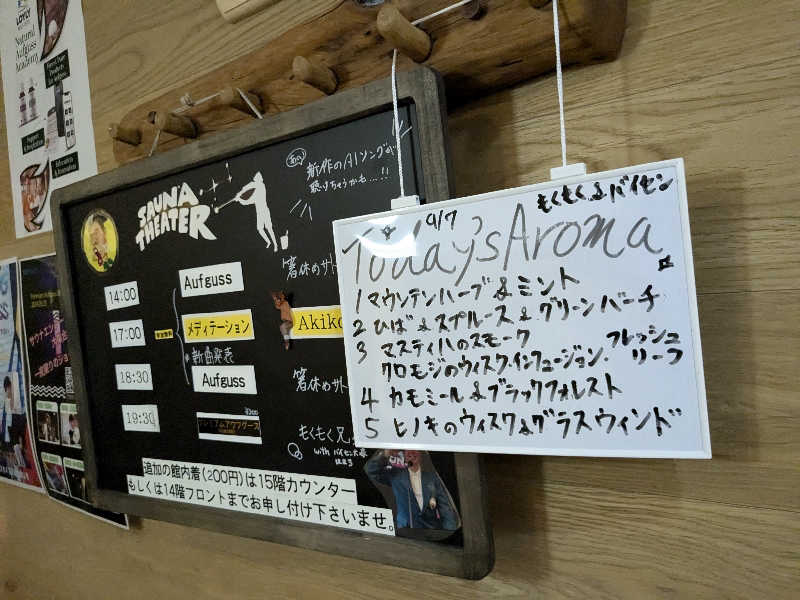 LOYLY
Natural
Aufguss
Academy
SAUNA
THEATER
新作のAIソングが
聴けちゃうかも…!!
箸休めサト
14:00
Aufguss
17:00
メディテーション
Akiko
新曲発表
18:30
Aufguss
箸休めサト
19:30
プレミアムアウフグース
もくもく兄
with バイセン
追加の館内着(200円)は15階カウンター
もしくは14階フロントまでお申し付け下さいませ。
9/7
もくもく&バイセン
Today'sAroma
1 マウンテンハーブ&ミント
2 ひば&スプルース&グリーンバーチ
3 マスティハのスモーク フレッシュ
クロモジのウィスク・インフュージョン. リーフ
4 カモミール&ブラックフォレスト
5 ヒノキのウィスク&グラスウィンド